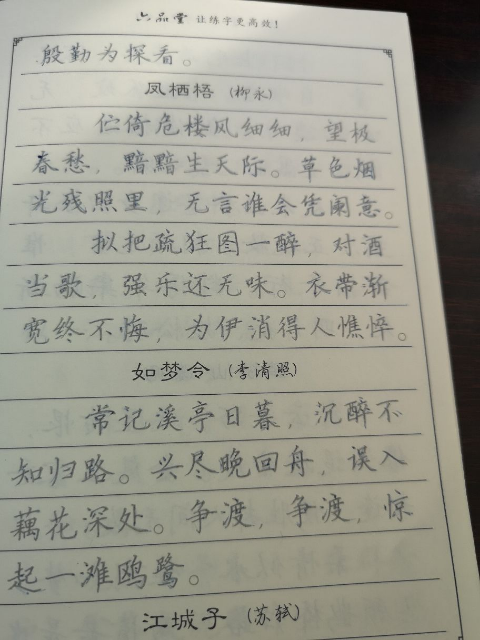 六品堂 让练字更高效！
殷勤为探看。
凤栖梧（柳永）
伫倚危楼风细细，望极
春愁，黯黯生天际。草色烟
光残照里，无言谁会凭阑意。
拟把疏狂图一醉，对酒
当歌，强乐还无味。衣带渐
宽终不悔，为伊消得人憔悴。
如梦令（李清照）
常记溪亭日暮，沉醉不
知归路。兴尽晚回舟，误入
藕花深处。争渡，争渡，惊
起一滩鸥鹭。
江城子（苏轼）